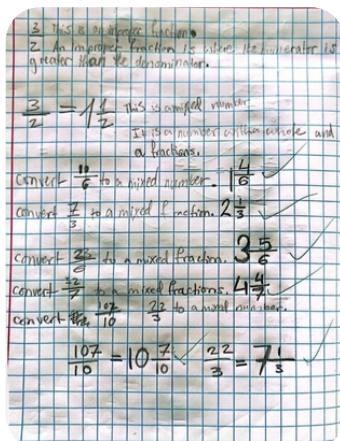 3 This is an improper fraction.
2 An improper fraction is where the numerator is
greater than the denominator.
3/2 = 1 1/2 This is a mixed number.
It is a number with a whole and
a fractions.
convert 10/6 to a mixed number. 1 4/6 ✓
convert 7/3 to a mixed fraction. 2 1/3 ✓
convert 23/6 to a mixed fraction. 3 5/6 ✓
convert 32/7 to a mixed fractions. 4 4/7 ✓
convert 107/10 22/3 to a mixed number.
107/10 = 10 7/10 ✓ 22/3 = 7 1/3 ✓